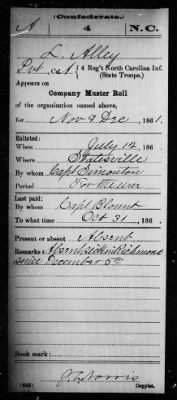 Confederate.
A 4 N.C.
L. Alley
Pvt, Co. A, 4 Reg't North Carolina Inf.
(State Troops.)
Appears on
Company Muster Roll
of the organization named above,
for Nov & Dec, 1861.
Enlisted:
When July 12, 186
Where Statesville
By whom Capt Simonton
Period For the war
Last paid:
By whom Capt Blount
To what time Oct 31, 186
Present or absent Absent
Remarks: Absent sick in Richmond
since December 5th
Book mark:
J. E. Norris
Copyist.